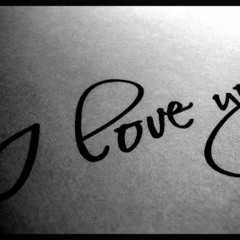 I love y